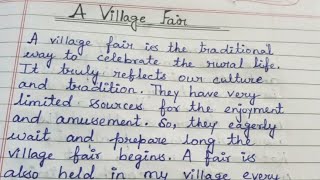 A Village Fair
A village fair is the traditional
way to celebrate the rural life.
It truly reflects our culture
and tradition. They have very
limited sources for the enjoyment
and amusement. So, they eagerly
wait and prepare long the
village fair begins. A fair is
also held in my village every